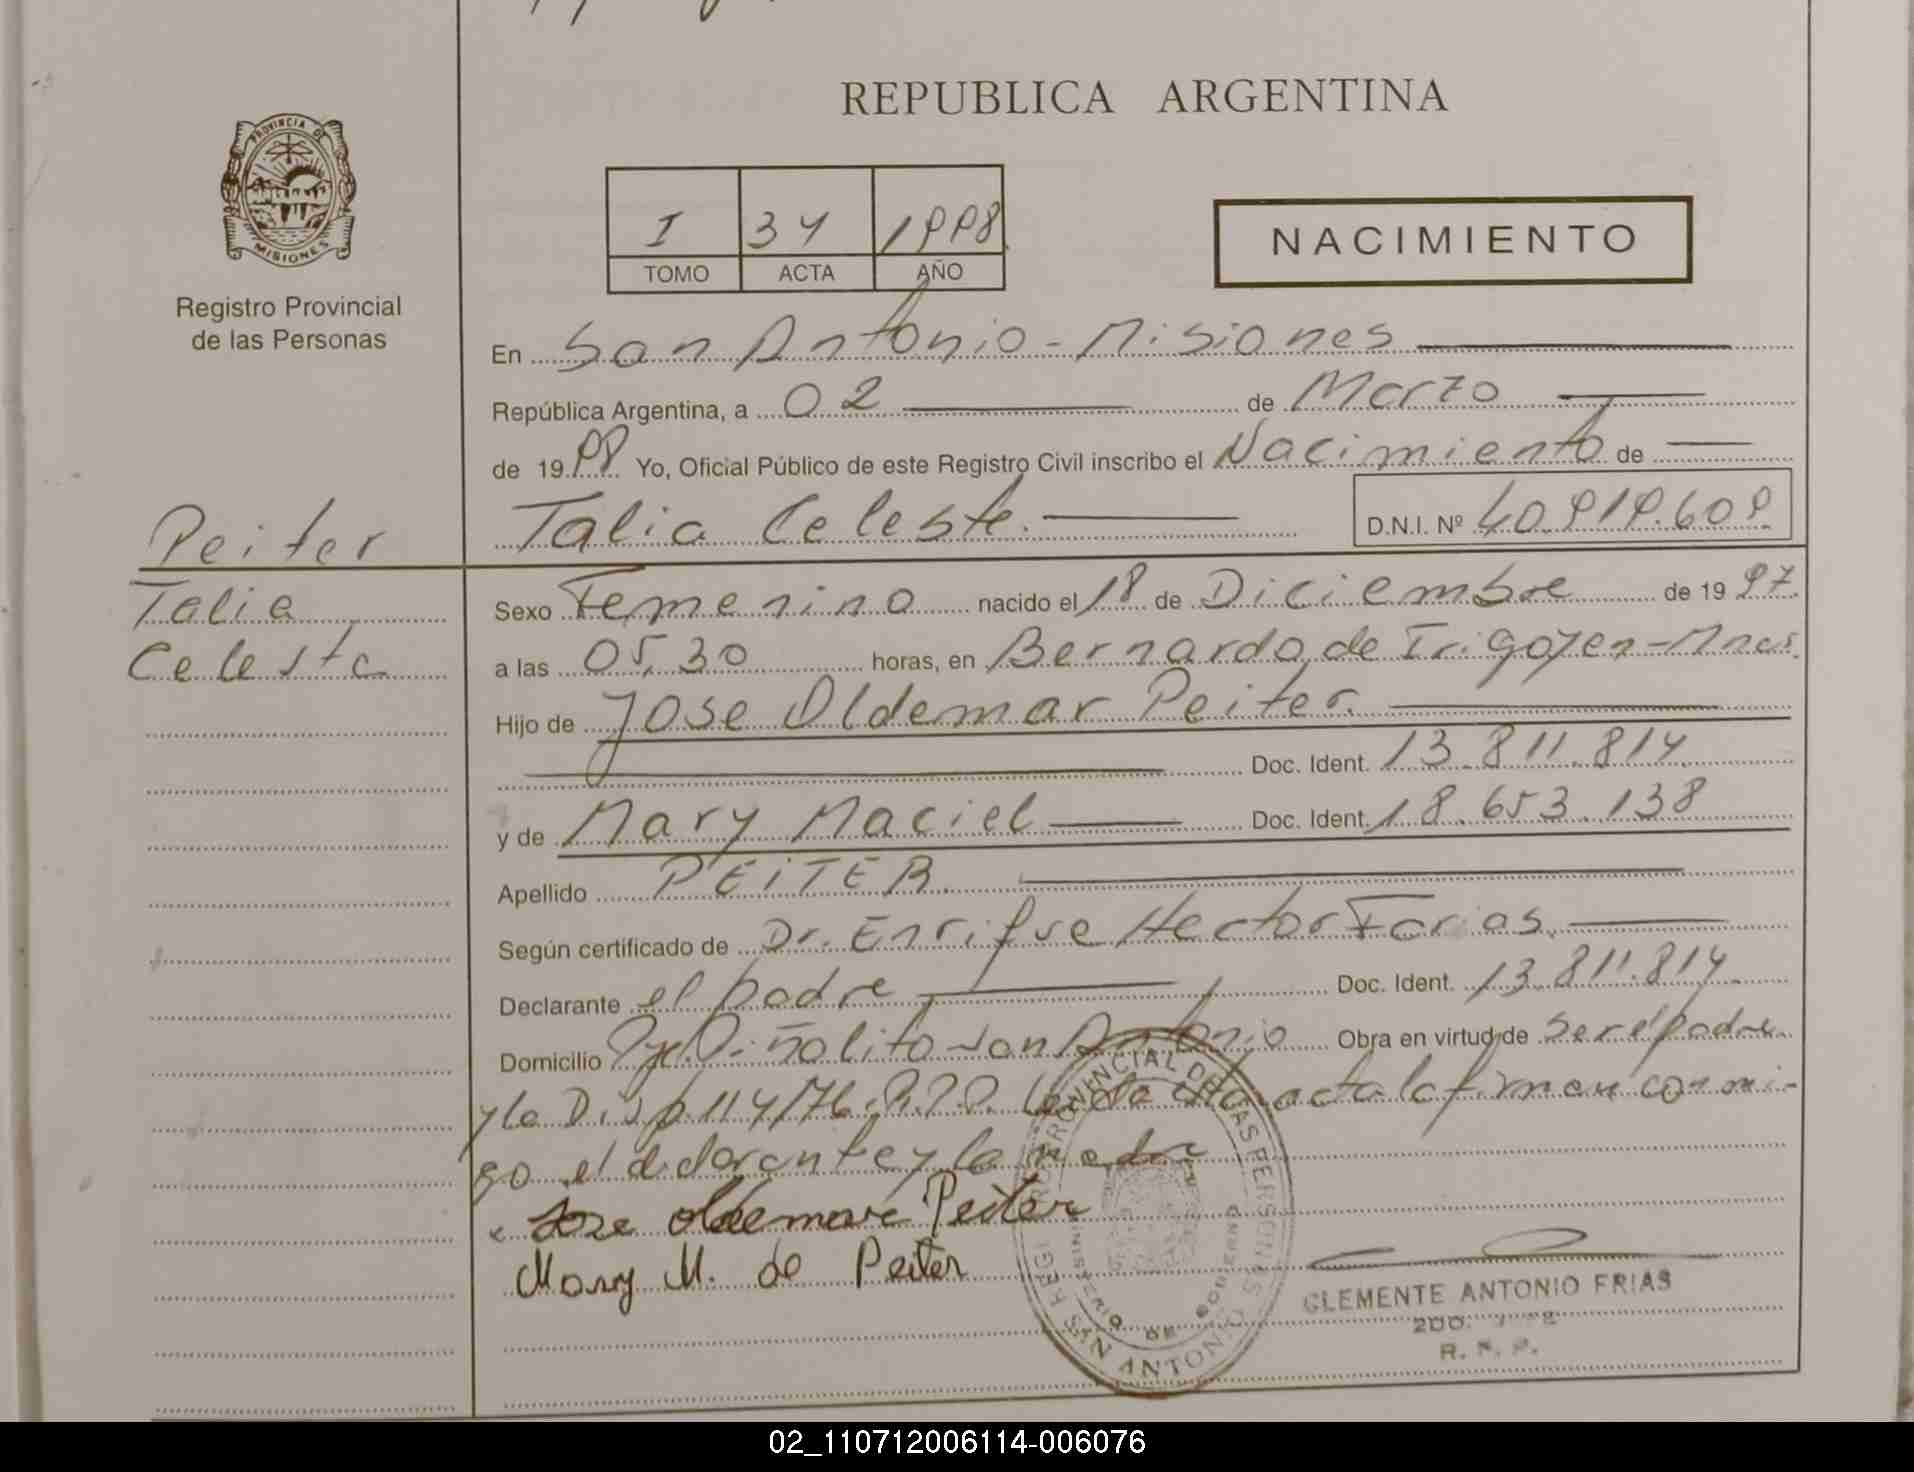 REPUBLICA ARGENTINA
PROVINCIA DE
MISIONES
Registro Provincial
de las Personas
I 34 1998
TOMO ACTA AÑO
NACIMIENTO
En San Antonio - Misiones
República Argentina, a 02 de Marzo
de 1998 Yo, Oficial Público de este Registro Civil inscribo el Nacimiento de
Talia Celeste. D.N.I. Nº 40.919.609
Peiter
Talia
Celeste
Sexo Femenino nacido el 18 de Diciembre de 1997
a las 05,30 horas, en Bernardo de Irigoyen - Mnes.
Hijo de Jose Oldemar Peiter.
Doc. Ident. 13.811.814
y de Mary Maciel Doc. Ident. 18.653.138
Apellido PEITER
Según certificado de Dr. Enrique Hector Farias.
Declarante el padre Doc. Ident. 13.811.814
Domicilio Pje. Piñalito San Antonio Obra en virtud de ser el padre
y la Disp. 114/76. R.P.P. Leida el acta la firman conmi-
go el declarante y la madre
Jose oldemar Peiter
Mary M. de Peiter
REGISTRO PROVINCIAL DE LAS PERSONAS
MINISTERIO DE GOBIERNO
SAN ANTONIO
CLEMENTE ANTONIO FRIAS
R.P.P.
02_110712006114-006076